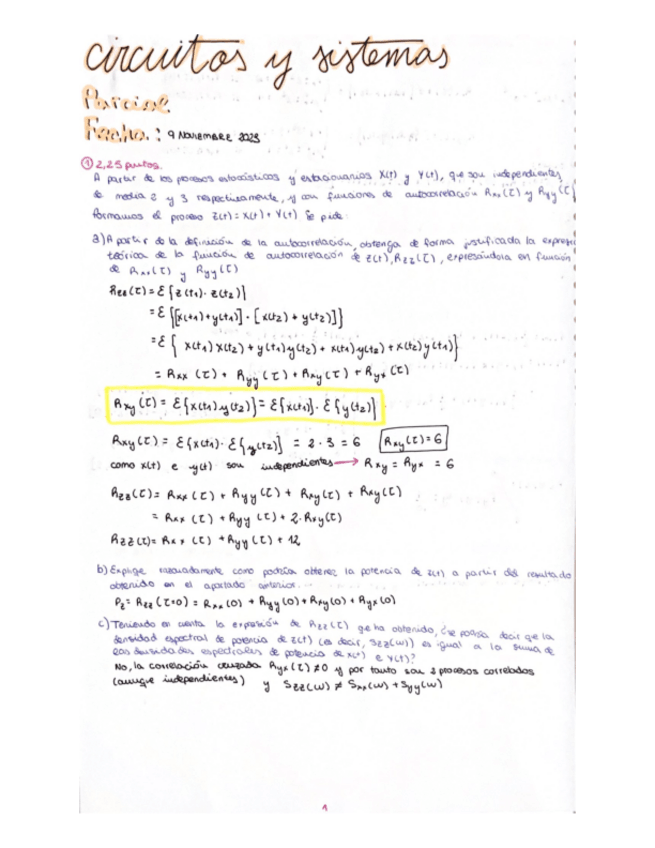 circuitos y sistemas
Parcial
Fecha.: 9 Noviembre 2023
① 2,25 puntos.
A partir de los procesos estocásticos y estacionarios X(t) y Y(t), que son independientes,
de media 2 y 3 respectivamente, y con funciones de autocorrelación Rxx(τ) y Ryy(τ)
formamos el proceso Z(t) = X(t) + Y(t) Se pide:
a) A partir de la definición de la autocorrelación, obtenga de forma justificada la expresi
teórica de la función de autocorrelación de z(t), Rzz(τ), expresándola en función
de Rxx(τ) y Ryy(τ)
Rzz(τ) = E{z(t1)·z(t2)}
= E{[x(t1)+y(t1)]·[x(t2)+y(t2)]}
= E{x(t1)x(t2)+y(t1)y(t2)+x(t1)y(t2)+x(t2)y(t1)}
= Rxx(τ) + Ryy(τ) + Rxy(τ) + Ryx(τ)
Rxy(τ) = E{x(t1)·y(t2)} = E{x(t1)}·E{y(t2)}
Rxy(τ) = E{x(t1)·E{y(t2)} = 2·3 = 6 Rxy(τ)=6
como x(t) e y(t) son independientes → Rxy = Ryx = 6
Rzz(τ) = Rxx(τ) + Ryy(τ) + Rxy(τ) + Rxy(τ)
= Rxx(τ) + Ryy(τ) + 2·Rxy(τ)
Rzz(τ) = Rxx(τ) + Ryy(τ) + 12
b) Explique razonadamente como podría obtener la potencia de z(t) a partir del resultado
obtenido en el apartado anterior.
Pz = Rzz(τ=0) = Rxx(0) + Ryy(0) + Rxy(0) + Ryx(0)
c) Teniendo en cuenta la expresión de Rzz(τ) que ha obtenido, ¿se podría decir que la
densidad espectral de potencia de z(t) (es decir, Szz(w)) es igual a la suma de
las densidades espectrales de potencia de x(t) e Y(t)?
No, la correlación cruzada Ryx(τ) ≠ 0 y por tanto son 2 procesos correlados
(aunque independientes) y Szz(w) ≠ Sxx(w) + Syy(w)
1